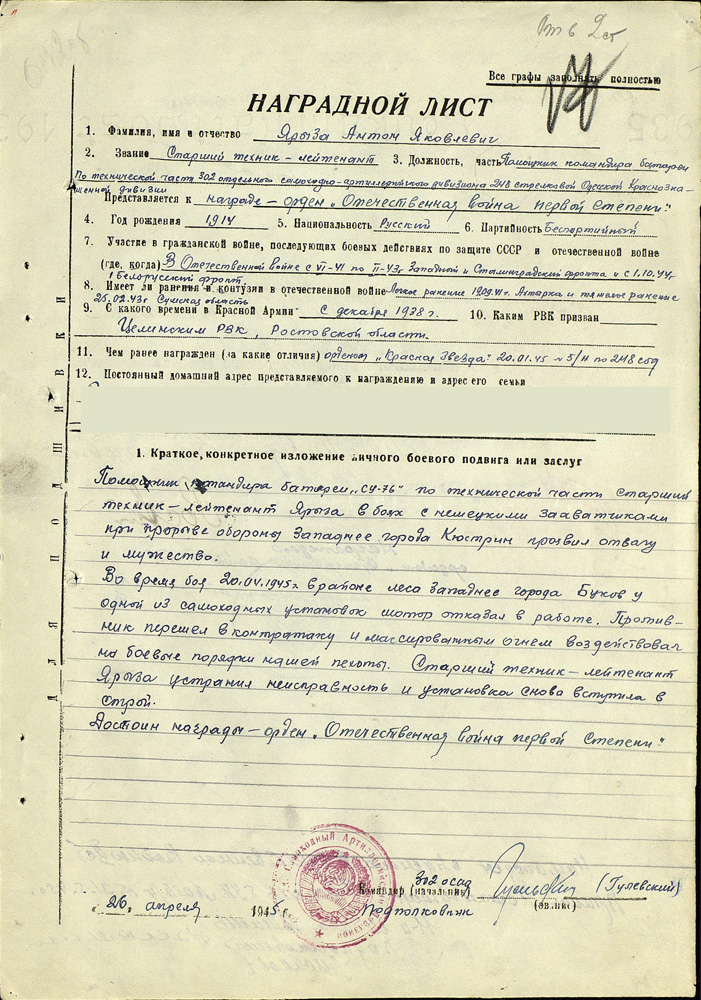 Вт в 2 ст
Все графы заполнять полностью
НАГРАДНОЙ ЛИСТ
1. Фамилия, имя и отчество Ярыза Антон Яковлевич
2. Звание Старший техник-лейтенант 3. Должность, часть Помощник командира батареи
по технической части 302 отдельного самоходно-артиллерийского дивизиона 248 стрелковой Одесской Краснозна-
менной дивизии
Представляется к награде – орден „Отечественная война первой степени“
4. Год рождения 1914 5. Национальность Русский 6. Партийность Беспартийный
7. Участие в гражданской войне, последующих боевых действиях по защите СССР и отечественной войне
(где, когда) В Отечественной войне с VI-41 по II-43г Западный и Сталинградский фронта и с 1.10.44г
1 Белорусский фронт
8. Имеет ли ранения и контузии в отечественной войне Легкое ранение 19.09.41г. Ахтарка и тяжелое ранение
25.02.43г Сумская область
9. С какого времени в Красной Армии с декабря 1938 г. 10. Каким РВК призван
Целинским РВК, Ростовской области.
11. Чем ранее награжден (за какие отличия) орденом „Красная Звезда“ 20.01.45 №5/н по 248 сод
12. Постоянный домашний адрес представляемого к награждению и адрес его семьи
1. Краткое, конкретное изложение личного боевого подвига или заслуг
Помощник командира батареи „СУ-76“ по технической части старший
техник-лейтенант Ярыза в боях с немецкими захватчиками
при прорыве обороны Западнее города Кюстрин проявил отвагу
и мужество.
Во время боя 20.04.1945г. в районе леса Западнее города Буков у
одной из самоходных установок мотор отказал в работе. Против-
ник перешел в контратаку и массированным огнем воздействовал
на боевые порядки нашей пехоты. Старший техник-лейтенант
Ярыза устранил неисправность и установка снова вступила в
строй.
Достоин награды – орден „Отечественная война первой степени“
ДЛЯ ПОДШИВКИ
Самоходный Артиллерийский Дивизион
302 осад
Командир (начальник) (Гулевский)
Подполковник (звание)
„26“ апреля 1945 г.